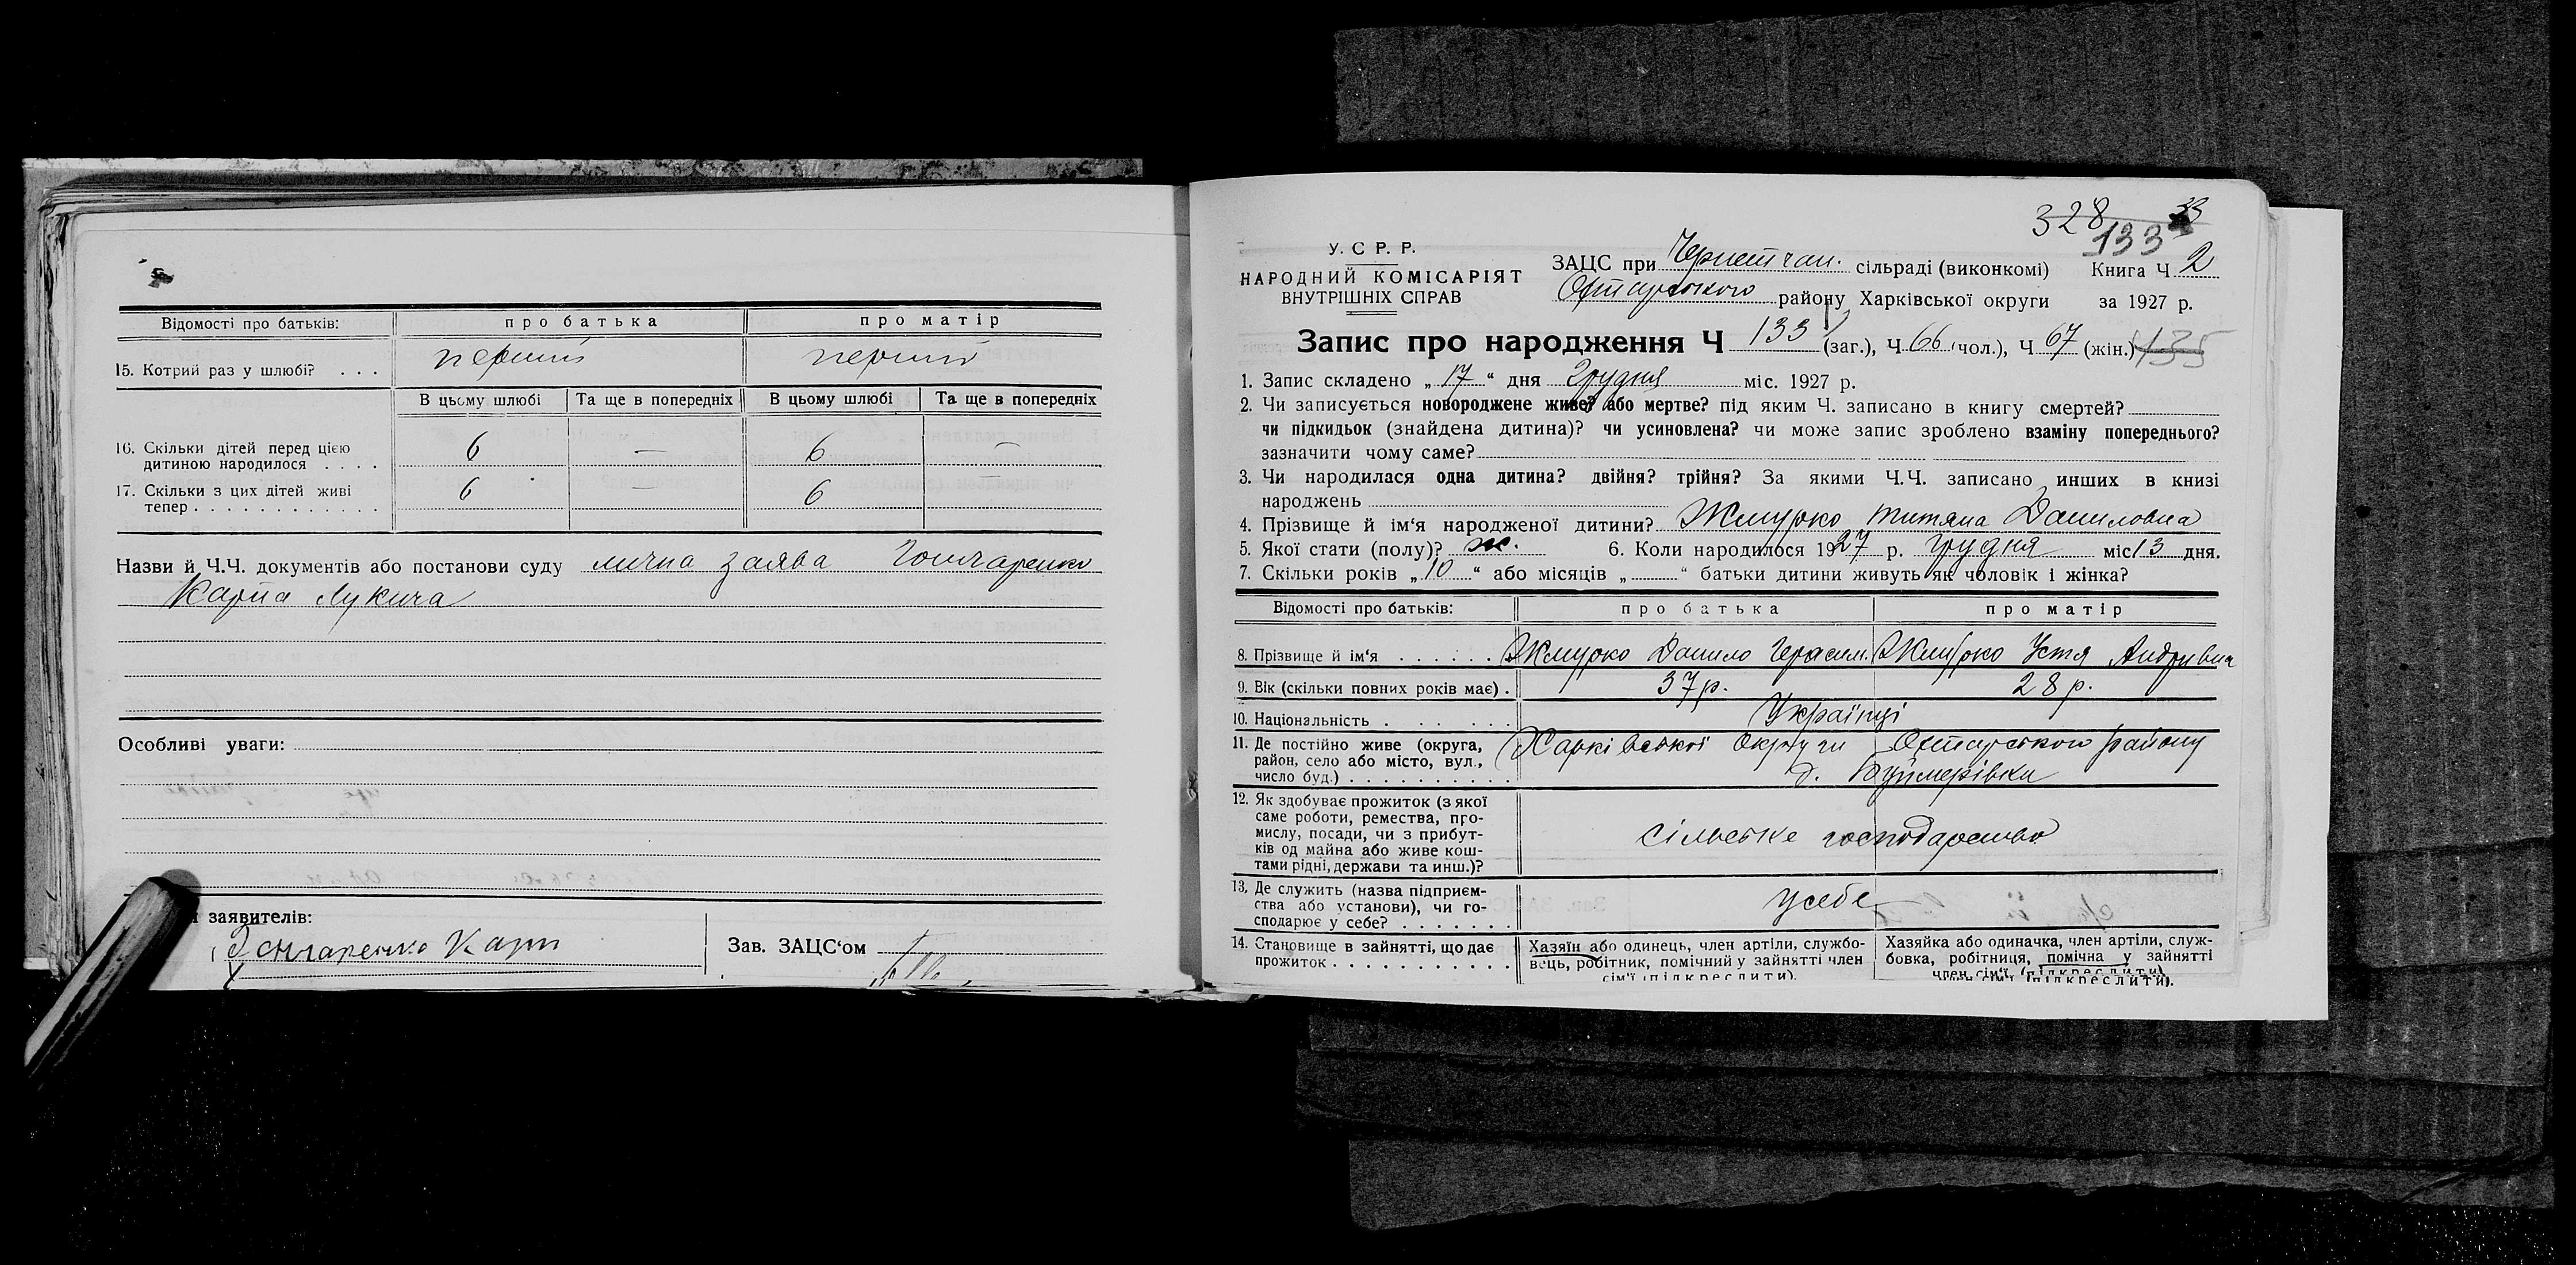 Відомості про батьків: про батька про матір
15. Котрий раз у шлюбі? . . . перший перший
В цьому шлюбі Та ще в попередніх В цьому шлюбі Та ще в попередніх
16. Скільки дітей перед цією
дитиною народилося . . . . 6 — 6 —
17. Скільки з цих дітей живі
тепер . . . . . . . . . . . . . 6 — 6 —
Назви й Ч.Ч. документів або постанови суду лична заява Гончаренко
Карпа Лукича
Особливі уваги:
заявителів:
Гончаренко Карп
Зав. ЗАЦС'ом
328 33
133
У. С Р. Р.
НАРОДНИЙ КОМІСАРІЯТ
ВНУТРІШНІХ СПРАВ
ЗАЦС при сільраді (виконкомі) Книга Ч 2
Охтирського району Харківської округи за 1927 р.
Запис про народження Ч 133 (заг.), Ч 66 (чол.), Ч 67 (жін.) 135
1. Запис складено „ 17 “ дня Грудня міс. 1927 р.
2. Чи записується новороджене живе? або мертве? під яким Ч. записано в книгу смертей?
чи підкидьок (знайдена дитина)? чи усиновлена? чи може запис зроблено взаміну попереднього?
зазначити чому саме?
3. Чи народилася одна дитина? двійня? трійня? За якими Ч.Ч. записано инших в книзі
народжень
4. Прізвище й ім'я народженої дитини? Жмурко Титяна Даниловна
5. Якої стати (полу)? ж. 6. Коли народилося 1927 р. грудня міс 13 дня.
7. Скільки років „ 10 “ або місяців „ “ батьки дитини живуть як чоловік і жінка?
Відомості про батьків: про батька про матір
8. Прізвище й ім'я . . . . . . Жмурко Данило Герасим. Жмурко Устя Андрівна
9. Вік (скільки повних років має) . 37 р. 28 р.
10. Національність . . . . . . Українці
11. Де постійно живе (округа,
район, село або місто, вул.,
число буд.) . . . . . . . . . . Харківської Округи Охтирського району
с. Буймерівки
12. Як здобуває прожиток (з якої
саме роботи, ремества, про-
мислу, посади, чи з прибут-
ків од майна або живе кош-
тами рідні, держави та инш.)? сільське господарство
13. Де служить (назва підприєм-
ства або установи), чи го-
сподарює у себе? . . . . . . . у себе
14. Становище в зайнятті, що дає
прожиток . . . . . . . . . . . .
Хазяїн або одинець, член артіли, службо-
вець, робітник, помічний у зайнятті член
сім'ї (підкреслити).
Хазяйка або одиначка, член артіли, служ-
бовка, робітниця, помічна у зайнятті
член сім'ї (підкреслити).
(підкреслити).